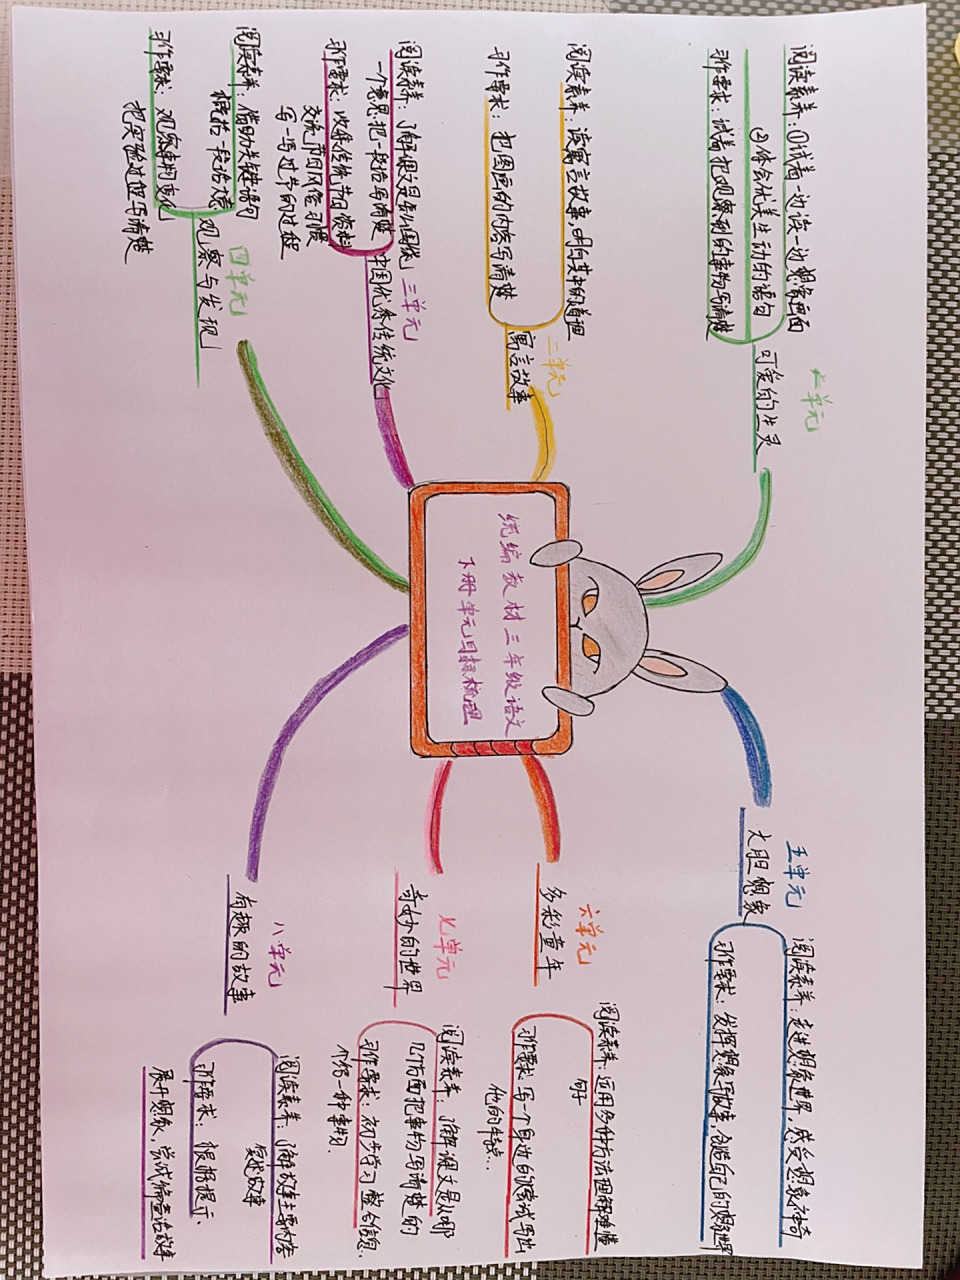 统编教材三年级语文
下册单元目标梳理
一单元
可爱的生灵
阅读素养：①试着一边读一边想象画面
②体会优美生动的语句
习作要求：试着把观察到的事物写清楚
二单元
寓言故事
阅读素养：读寓言故事，明白其中的道理
习作要求：把图画的内容写清楚
三单元
中国优秀传统文化
阅读素养：了解课文是怎么围绕
一个意思把一段话写清楚
习作要求：收集传统节日资料
交流节日风俗习惯
写一写过节的过程
四单元
观察与发现
阅读素养：借助关键语句
概括一段话大意
习作要求：观察事物变化
把实验过程写清楚
五单元
大胆想象
阅读素养：走进想象世界，感受想象神奇
习作要求：发挥想象写故事，创造自己的想象世界
六单元
多彩童年
阅读素养：运用多种方法理解难懂
句子
习作要求：写一个身边的人，尝试写出
他的特点..
七单元
奇妙的世界
阅读素养：了解课文是从哪
几个方面把事物写清楚的
习作要求：初步学习整合信息
介绍一种事物
八单元
有趣的故事
阅读素养：了解故事主要内容
复述故事
习作要求：根据提示、
展开想象，尝试编童话故事